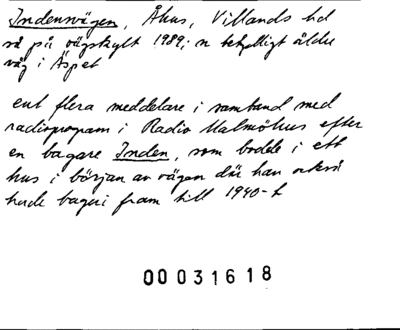 Indensvägen, Åhus, Villands hd
så på vägskylt 1989; n betydligt äldre
väg i Äspet
enl flera meddelare i samband med
radioprogram i Radio Malmöhus efter
en bagare Inden, som bodde i ett
hus i början av vägen där han också
hade bageri fram till 1940-t
00031618